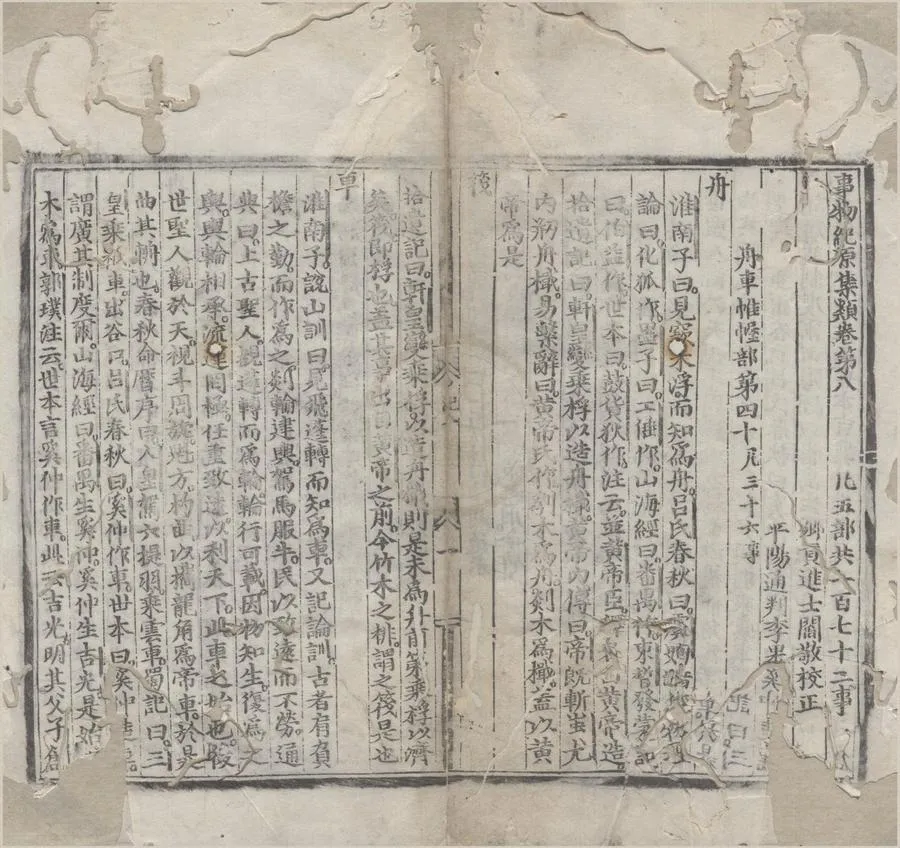 事物紀原集類卷第八 凡五部共一百七十二事
鄉貢進士閻敬校正
平陽通判李果
舟車帷幄部第四十凡三十六事
舟
淮南子曰見窾木浮而知為舟呂氏春秋曰虞姁
論曰化狐作墨子曰工倕作山海經曰番禺作束晳發蒙記
曰伯益作世本曰鼓貨狄作注云並黃帝臣 黃帝造
拾遺記曰軒皇變乘桴以造舟檝黃帝內傳曰帝既斬蚩尤
內刳舟檝易繫辭曰黃帝氏作刳木為舟剡木為檝蓋以黃
帝為是
筏
拾遺記曰軒皇變乘桴以造舟檝則是未為舟前第乘桴以濟
矣筏即桴也蓋其事出自黃帝之前今竹木之排謂之筏是也
車
淮南子說山訓曰見飛蓬轉而知為車又記論訓古者有負
檐之勤而作為之㨖輪建輿駕馬服牛民以致遠而不勞通
典曰上古聖人觀蓬轉而為輪輪行可載因物知生復為之
輿輿輪相承流運罔極任重致遠以利天下此車之始也後
世聖人觀於天視斗周旋魁方杓曲以攜龍角為帝車於是
曲其輈也春秋命曆序曰人皇駕六提羽乘雲車蜀記曰三
皇乘祗車出谷口呂氏春秋曰奚仲作車世本曰奚仲
謂廣其制度爾山海經曰番禺生奚仲奚仲生吉光是始
木為車郭璞注云世本言奚仲作車此云吉光明其父子